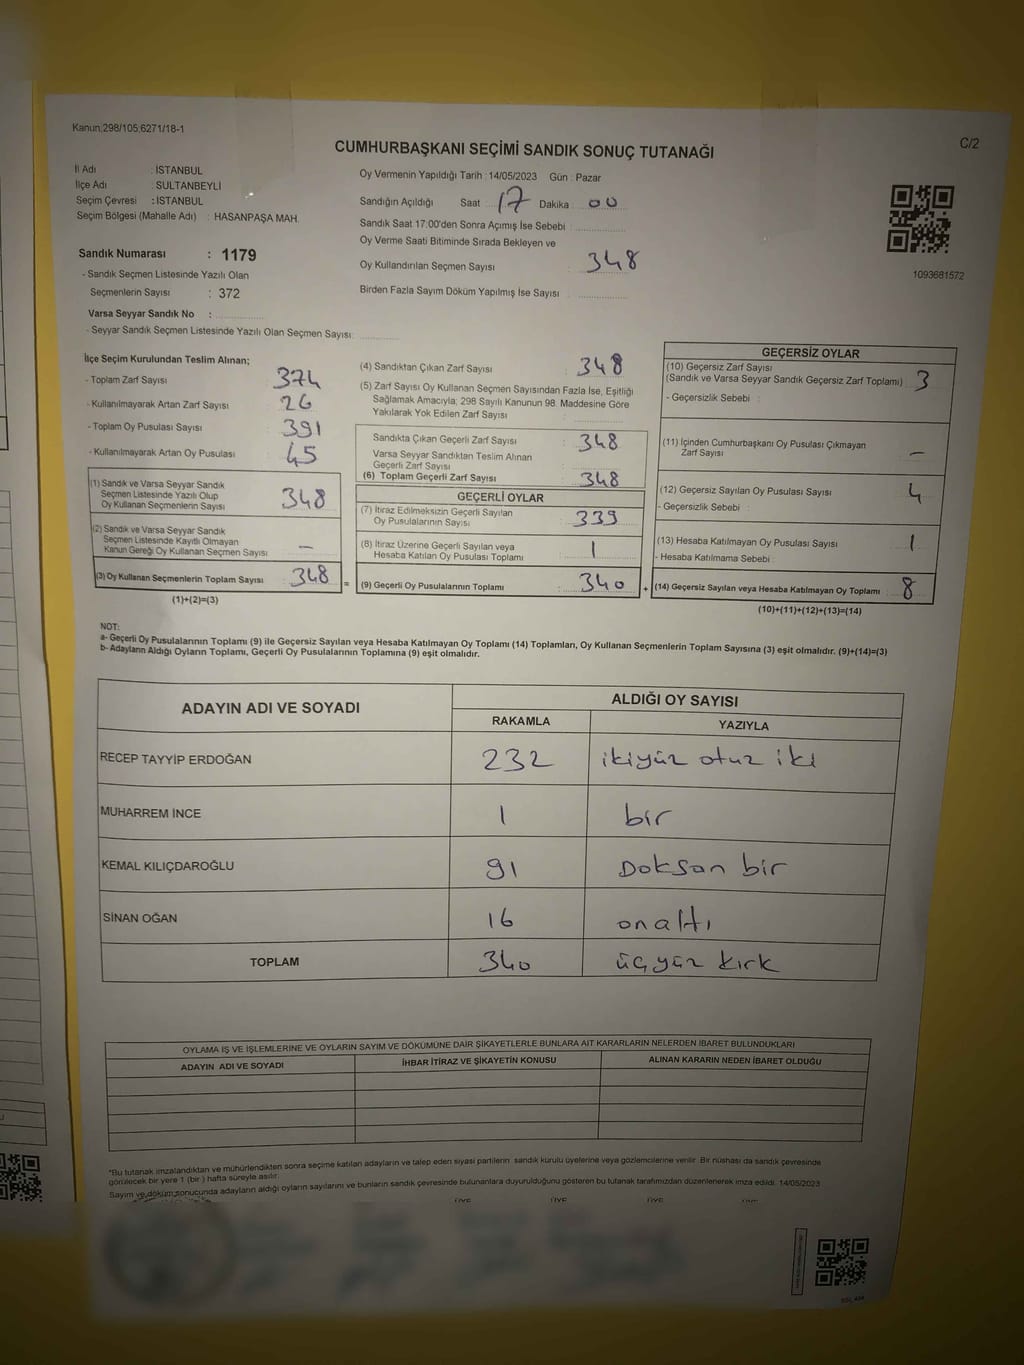 Kanun;298/105;6271/18-1
C/2
CUMHURBAŞKANI SEÇİMİ SANDIK SONUÇ TUTANAĞI
İl Adı : İSTANBUL
İlçe Adı : SULTANBEYLİ
Seçim Çevresi : İSTANBUL
Seçim Bölgesi (Mahalle Adı) : HASANPAŞA MAH.
Sandık Numarası : 1179
- Sandık Seçmen Listesinde Yazılı Olan
Seçmenlerin Sayısı : 372
Varsa Seyyar Sandık No :
- Seyyar Sandık Seçmen Listesinde Yazılı Olan Seçmen Sayısı:
Oy Vermenin Yapıldığı Tarih : 14/05/2023 Gün : Pazar
Sandığın Açıldığı Saat 17 Dakika : 00
Sandık Saat 17:00'den Sonra Açımış İse Sebebi :
Oy Verme Saati Bitiminde Sırada Bekleyen ve
Oy Kullandırılan Seçmen Sayısı : 348
Birden Fazla Sayım Döküm Yapılmış İse Sayısı :
1093681572
İlçe Seçim Kurulundan Teslim Alınan;
- Toplam Zarf Sayısı : 374
- Kullanılmayarak Artan Zarf Sayısı : 26
- Toplam Oy Pusulası Sayısı : 391
- Kullanılmayarak Artan Oy Pusulası : 45
(1) Sandık ve Varsa Seyyar Sandık
Seçmen Listesinde Yazılı Olup
Oy Kullanan Seçmenlerin Sayısı : 348
(2) Sandık ve Varsa Seyyar Sandık
Seçmen Listesinde Kayıtlı Olmayan
Kanun Gereği Oy Kullanan Seçmen Sayısı : –
(3) Oy Kullanan Seçmenlerin Toplam Sayısı : 348 =
(1)+(2)=(3)
(4) Sandıktan Çıkan Zarf Sayısı : 348
(5) Zarf Sayısı Oy Kullanan Seçmen Sayısından Fazla İse, Eşitliği
Sağlamak Amacıyla; 298 Sayılı Kanunun 98. Maddesine Göre
Yakılarak Yok Edilen Zarf Sayısı :
Sandıkta Çıkan Geçerli Zarf Sayısı : 348
Varsa Seyyar Sandıktan Teslim Alınan
Geçerli Zarf Sayısı :
(6) Toplam Geçerli Zarf Sayısı : 348
GEÇERLİ OYLAR
(7) İtiraz Edilmeksizin Geçerli Sayılan
Oy Pusulalarının Sayısı : 339
(8) İtiraz Üzerine Geçerli Sayılan veya
Hesaba Katılan Oy Pusulası Toplamı : 1
(9) Geçerli Oy Pusulalarının Toplamı : 340 +
GEÇERSİZ OYLAR
(10) Geçersiz Zarf Sayısı
(Sandık ve Varsa Seyyar Sandık Geçersiz Zarf Toplamı) : 3
- Geçersizlik Sebebi :
(11) İçinden Cumhurbaşkanı Oy Pusulası Çıkmayan
Zarf Sayısı : –
(12) Geçersiz Sayılan Oy Pusulası Sayısı : 4
- Geçersizlik Sebebi :
(13) Hesaba Katılmayan Oy Pusulası Sayısı : 1
- Hesaba Katılmama Sebebi :
(14) Geçersiz Sayılan veya Hesaba Katılmayan Oy Toplamı : 8
(10)+(11)+(12)+(13)=(14)
NOT:
a- Geçerli Oy Pusulalarının Toplamı (9) ile Geçersiz Sayılan veya Hesaba Katılmayan Oy Toplamı (14) Toplamları, Oy Kullanan Seçmenlerin Toplam Sayısına (3) eşit olmalıdır. (9)+(14)=(3)
b- Adayların Aldığı Oyların Toplamı, Geçerli Oy Pusulalarının Toplamına (9) eşit olmalıdır.
ADAYIN ADI VE SOYADI ALDIĞI OY SAYISI
RAKAMLA YAZIYLA
RECEP TAYYİP ERDOĞAN 232 ikiyüz otuz iki
MUHARREM İNCE 1 bir
KEMAL KILIÇDAROĞLU 91 Doksan bir
SİNAN OĞAN 16 onaltı
TOPLAM 340 üçyüz kırk
OYLAMA İŞ VE İŞLEMLERİNE VE OYLARIN SAYIM VE DÖKÜMÜNE DAİR ŞİKAYETLERLE BUNLARA AİT KARARLARIN NELERDEN İBARET BULUNDUKLARI
ADAYIN ADI VE SOYADI İHBAR İTİRAZ VE ŞİKAYETİN KONUSU ALINAN KARARIN NEDEN İBARET OLDUĞU
*Bu tutanak imzalandıktan ve mühürlendikten sonra seçime katılan adayların ve talep eden siyasi partilerin sandık kurulu üyelerine veya gözlemcilerine verilir. Bir nüshası da sandık çevresinde
görülecek bir yere 1 (bir) hafta süreyle asılır.
Sayım ve döküm sonucunda adayların aldığı oyların sayılarını ve bunların sandık çevresinde bulunanlara duyurulduğunu gösteren bu tutanak tarafımızdan düzenlenerek imza edildi. 14/05/2023